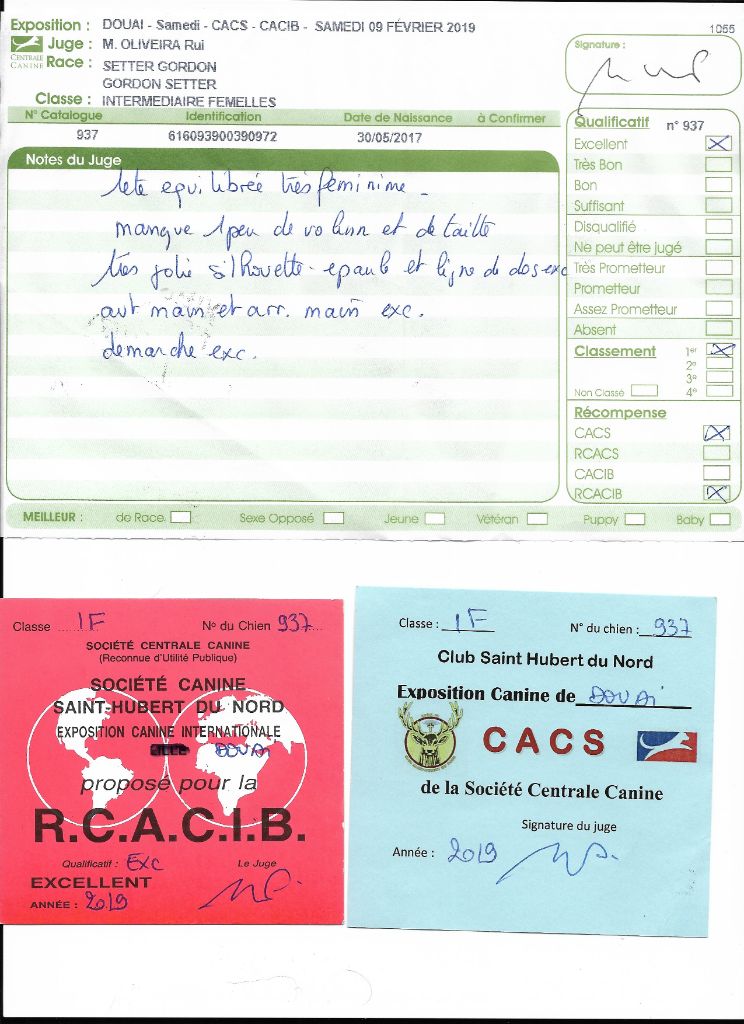 Exposition : DOUAI - Samedi - CACS - CACIB - SAMEDI 09 FÉVRIER 2019
1055
CENTRALE CANINE
Juge : M. OLIVEIRA Rui
Race : SETTER GORDON
GORDON SETTER
Classe : INTERMEDIAIRE FEMELLES
Signature :
N° Catalogue Identification Date de Naissance à Confirmer
937 616093900390972 30/05/2017
Notes du Juge
tete equilibrée très feminime -
manque 1 peu de volum et de taille
très jolie silhouette - epaule et ligne de dos exc
avt main et arr. main exc.
demarche exc.
Qualificatif n° 937
Excellent
Très Bon
Bon
Suffisant
Disqualifié
Ne peut être jugé
Très Prometteur
Prometteur
Assez Prometteur
Absent
Classement 1er
2e
3e
Non Classé 4e
Récompense
CACS
RCACS
CACIB
RCACIB
MEILLEUR : de Race Sexe Opposé Jeune Vétéran Puppy Baby
Classe IF N° du Chien 937
SOCIÉTÉ CENTRALE CANINE
(Reconnue d'Utilité Publique)
SOCIÉTÉ CANINE
SAINT-HUBERT DU NORD
EXPOSITION CANINE INTERNATIONALE
DOUAI
propose pour la
R.C.A.C.I.B.
Qualificatif : EXC Le Juge
EXCELLENT
ANNÉE : 2019
Classe : IF N° du chien : 937
Club Saint Hubert du Nord
Exposition Canine de DOUAI
CACS
de la Société Centrale Canine
Signature du juge
Année : 2019